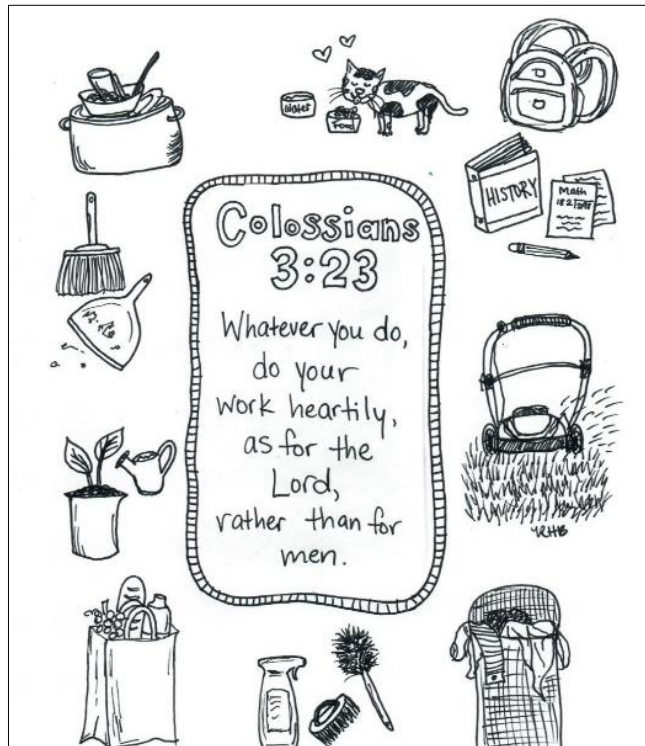 Water
Food
HISTORY
Math
Colossians
3:23
Whatever you do,
do your
work heartily,
as for the
Lord,
rather than for
men.